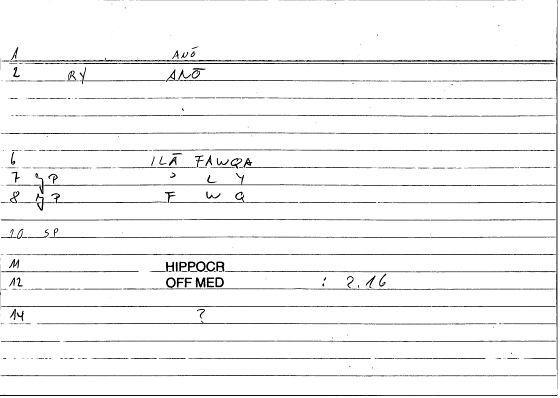 1 ANŌ
2 RY ANŌ
6 ILĀ FAWQA
7 P ʾ L Y
8 P F W Q
10 SP
11 HIPPOCR
12 OFF MED : 2.16
14 ?